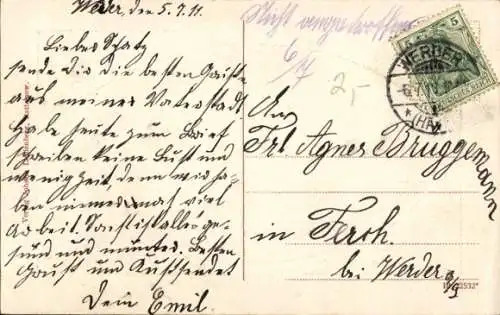 Werder, den 5.7.11.
Liebes Schatz
sende Dir die besten Grüße
aus meiner Vaterstadt.
Habe heute zum Brief
schreiben keine Lust und
wenig Zeit, denn wir ha-
ben immer mal viel
Arbeit. Sonst ist alles ge-
sund und munter. Besten
Gruß und Kuß sendet
Dein Emil.
Nicht
6/7
2,-
5
WERDER
(HA
An
Frl Agnes Bruggemann
in Ferch.
bei Werder a/H